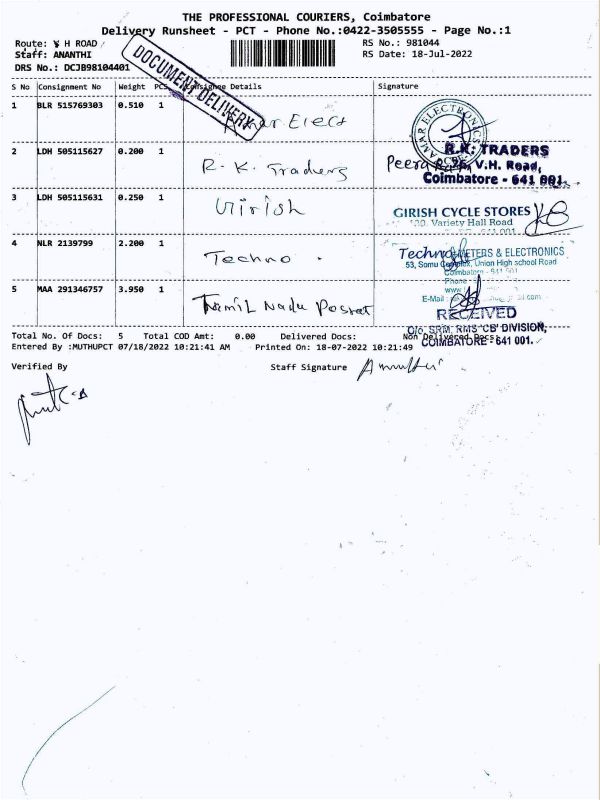 THE PROFESSIONAL COURIERS, Coimbatore
Delivery Runsheet - PCT - Phone No.:0422-3505555 - Page No.:1
Route: V H ROAD
RS No.: 981044
Staff: ANANTHI
RS Date: 18-Jul-2022
DRS No.: DCJB98104401
DOCUMENT DELIVERY
S No Consignment No Weight PCS Consignee Details Signature
1 BLR 515769303 0.510 1 Amar Elect
AMAR ELECTRONIC
2 LDH 505115627 0.200 1 R.K. Traders
R.K. TRADERS
V.H. Road,
Coimbatore - 641 001.
3 LDH 505115631 0.250 1 Girish
GIRISH CYCLE STORES
130, Variety Hall Road
4 NLR 2139799 2.200 1 Techno.
Techno METERS & ELECTRONICS
53, Somu Complex, Union High school Road
Coimbatore - 641 001
Phone
5 MAA 291346757 3.950 1 Tamil Nadu Postal
www
E-Mail :
RECEIVED
O/o. SRM, RMS 'CB' DIVISION,
COIMBATORE - 641 001.
Total No. Of Docs: 5 Total COD Amt: 0.00 Delivered Docs: Non Delivered Docs:
Entered By :MUTHUPCT 07/18/2022 10:21:41 AM Printed On: 18-07-2022 10:21:49
Verified By Staff Signature